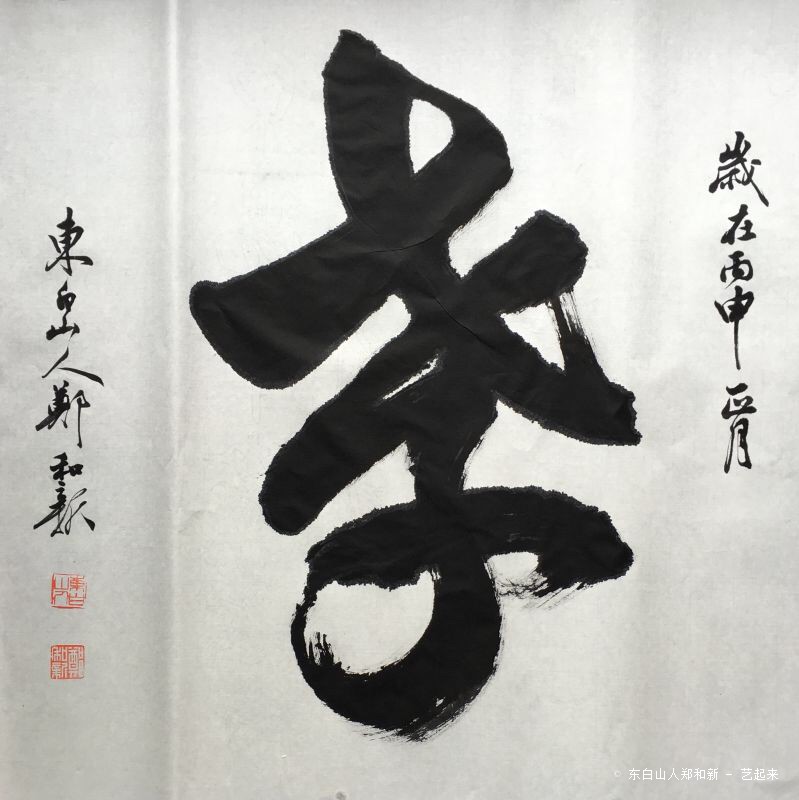 歲在丙申 正月
東白山人鄭和新
東白山人
© 东白山人郑和新 - 艺起来